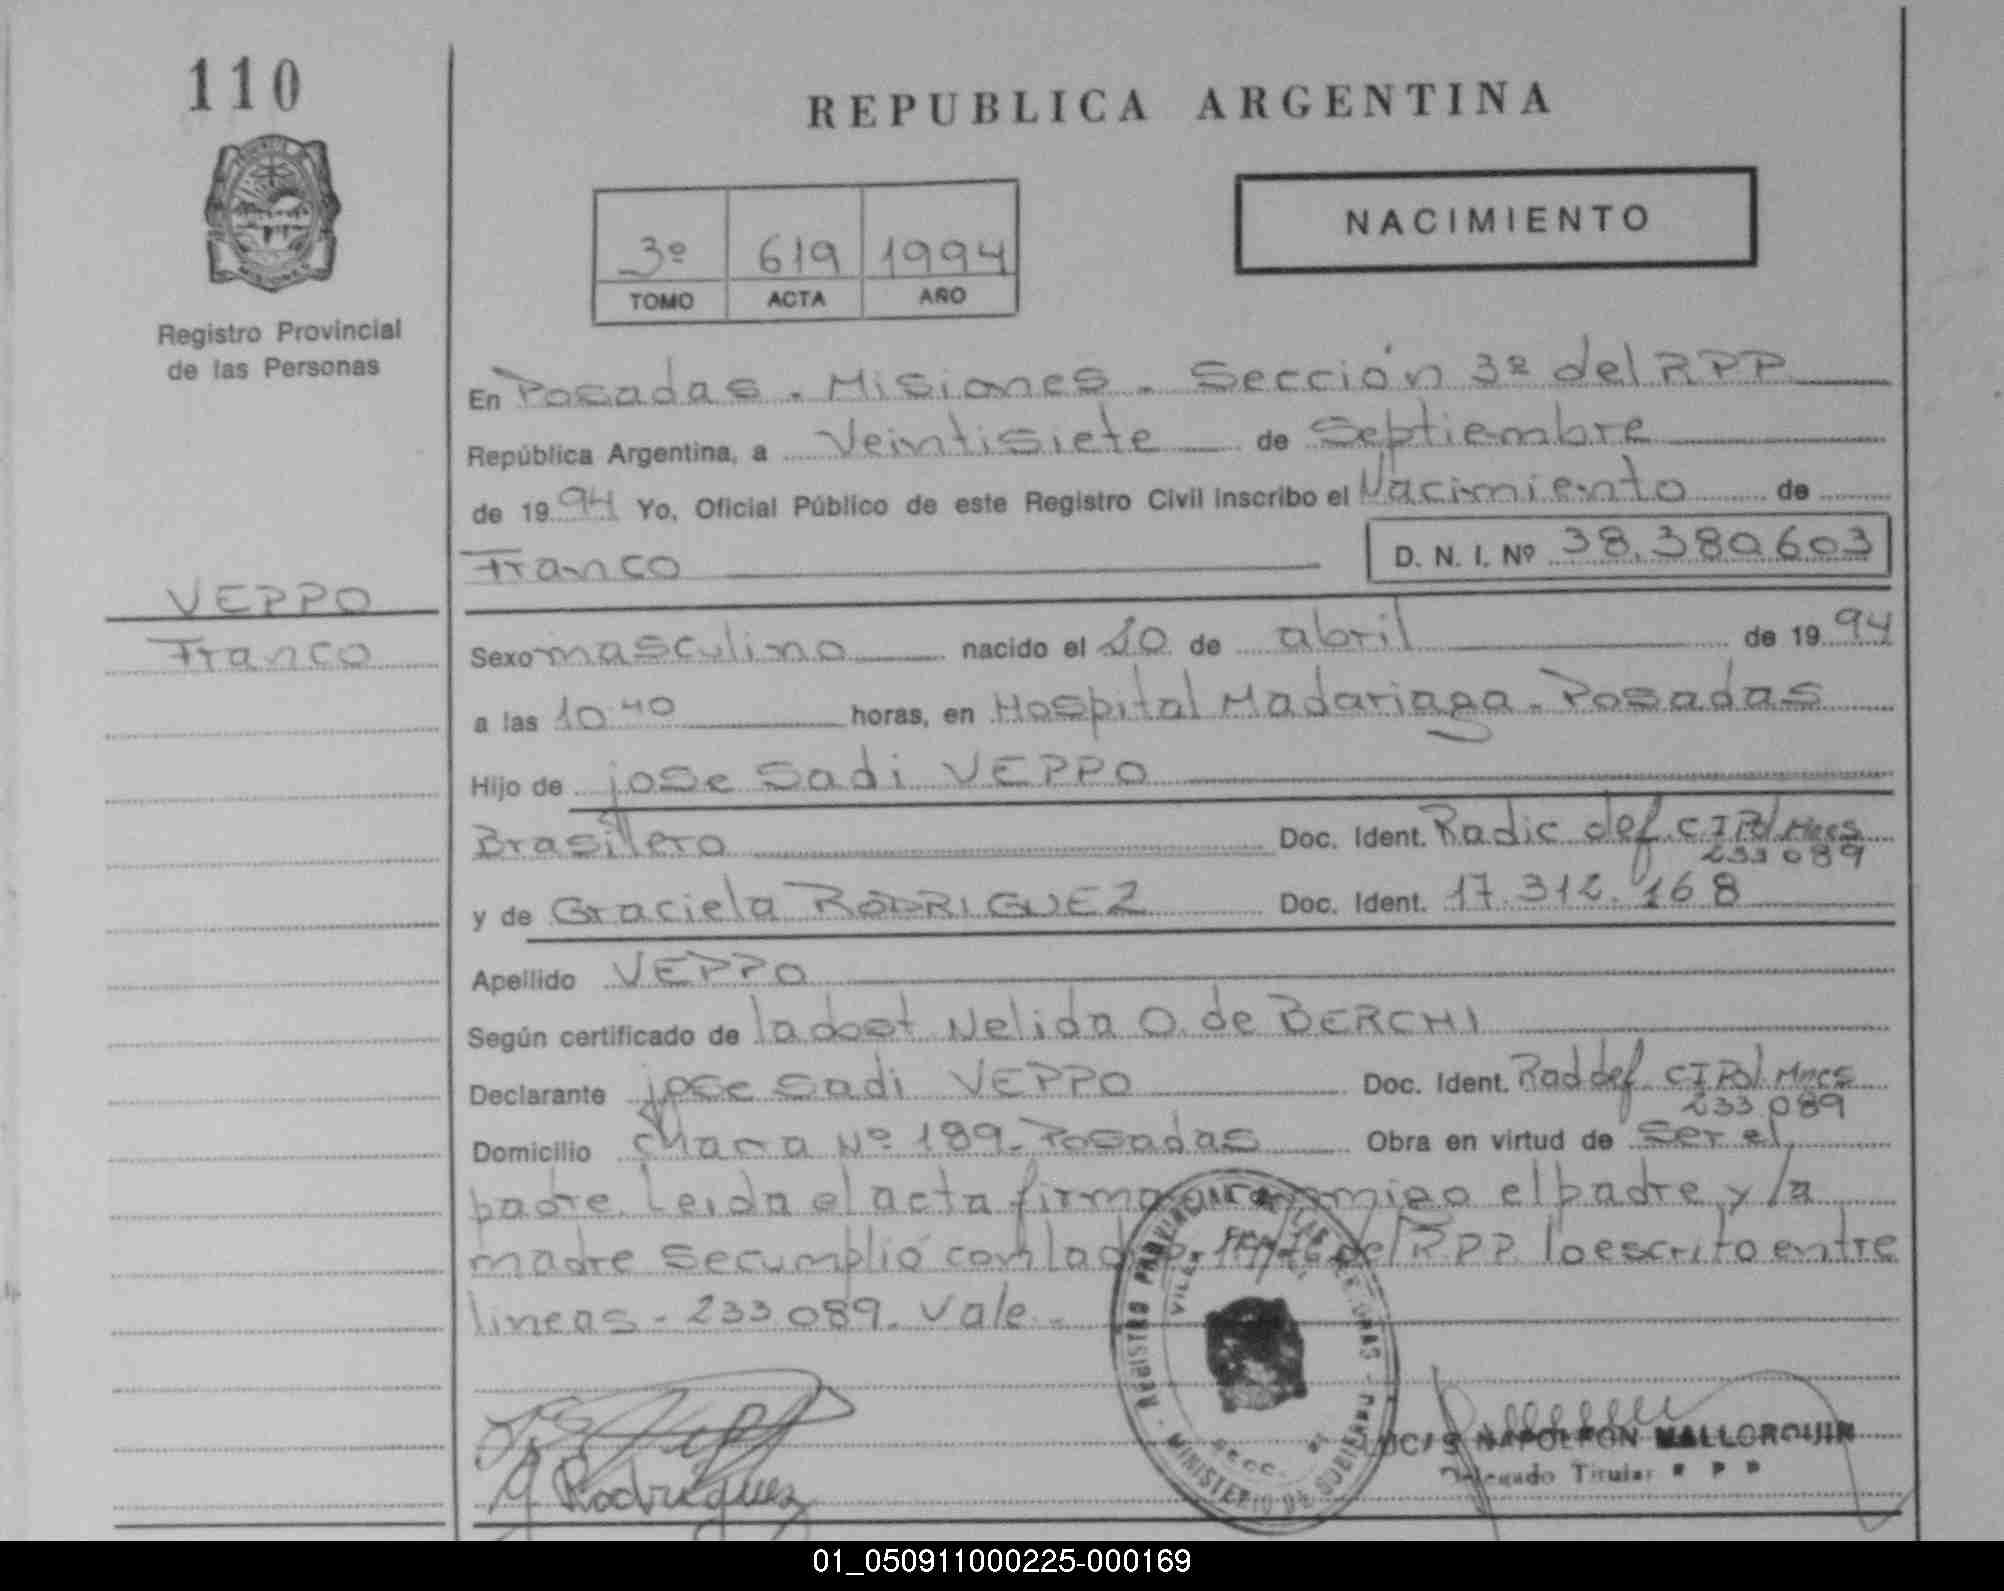 110
REPUBLICA ARGENTINA
NACIMIENTO
3º 619 1994
TOMO ACTA AÑO
Registro Provincial
de las Personas
En Posadas - Misiones - Sección 3ª del RPP
República Argentina, a Veintisiete de Septiembre
de 1994 Yo, Oficial Público de este Registro Civil inscribo el Nacimiento de
Franco D. N. I. Nº 38.380603
VEPPO
Franco
Sexo masculino nacido el 20 de abril de 1994
a las 10 40 horas, en Hospital Madariaga - Posadas
Hijo de jose Sadi VEPPO
Brasilero Doc. Ident. Radic def. CIPol Mnes
233 089
y de Graciela RODRIGUEZ Doc. Ident. 17.312.168
Apellido VEPPO
Según certificado de la obst Nelida O. de BERCHI
Declarante jose sadi VEPPO Doc. Ident. Rad def CIPol Mnes
233 089
Domicilio Nº 189 - Posadas Obra en virtud de ser el
padre. Leida el acta firma conmigo el padre y la
madre se cumplió con la del RPP. lo escrito entre
lineas - 233 089. Vale -
REGISTRO PROVINCIAL DE LAS PERSONAS - MINISTERIO DE GOBIERNO
G Rodriguez
NAPOLEON MALLORQUIN
Delegado Titular R P P
01_050911000225-000169